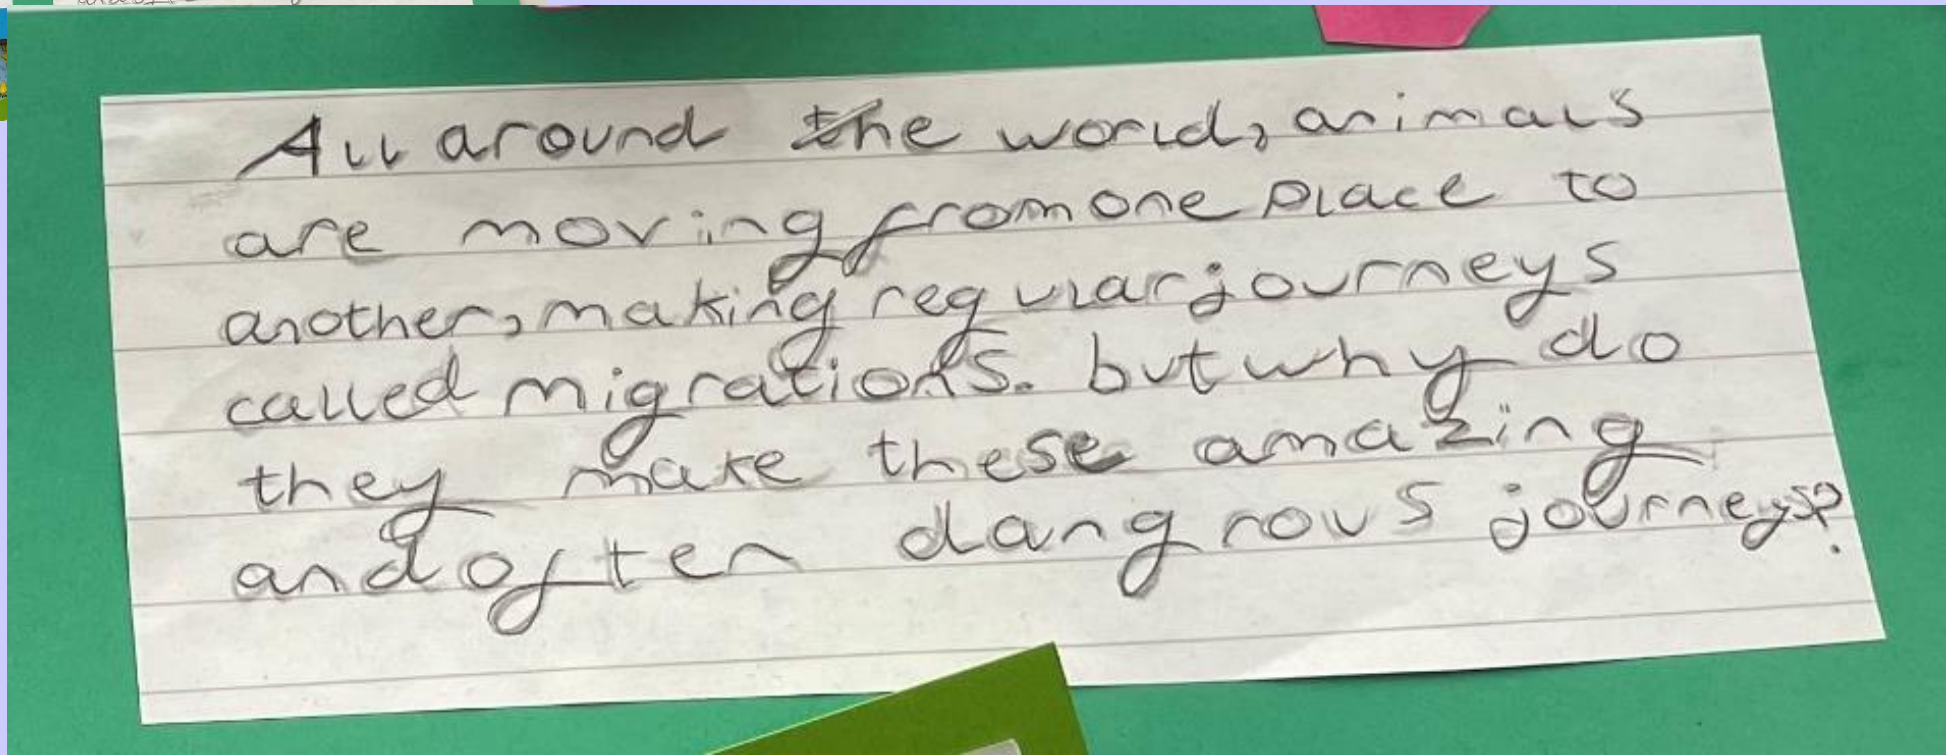 All around the world, animals
are moving from one place to
another, making regular journeys
called migrations. but why do
they make these amazing
and often dangrous journeys?